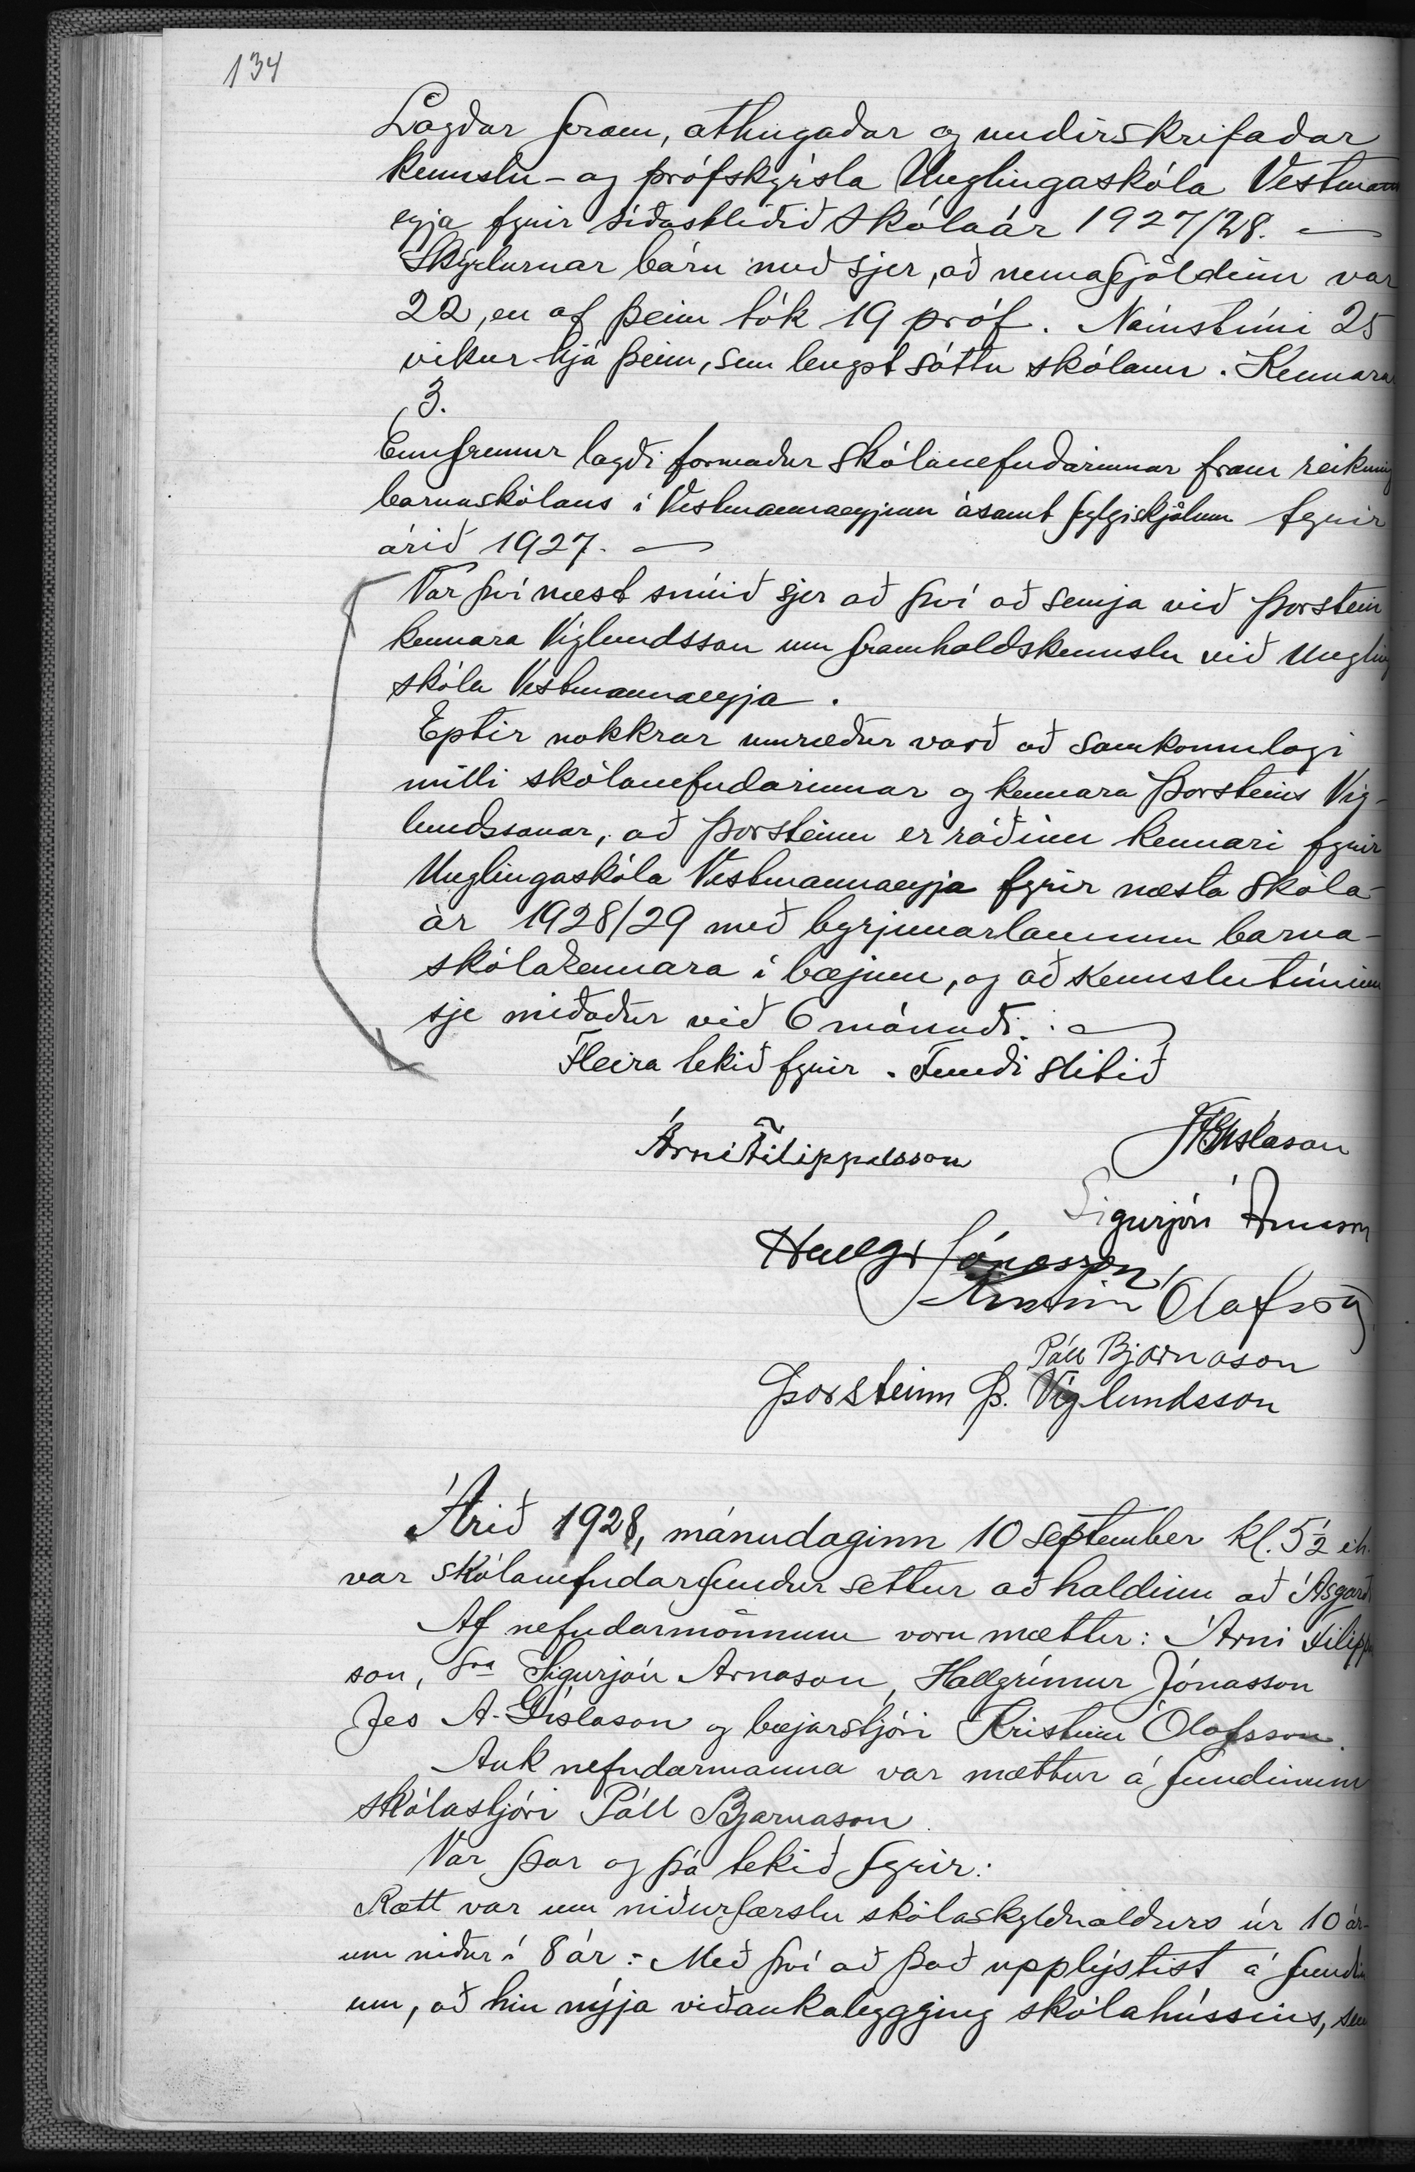 134
Lagðar fram, athugaðar og undirskrifaðar
kennslu- og prófskýrsla Unglingaskóla Vestmann
eyja fyrir síðastliðið skólaár 1927/28. —
Skýrslurnar báru með sjer, að nemafjöldinn var
22, en af þeim tók 19 próf. Námstími 25
vikur hjá þeim, sem lengst sóttu skólann. Kennara
3.
Ennfremur lagði formaður skólanefndarinnar fram reikning
barnaskólans í Vestmannaeyjum ásamt fylgiskjölum fyrir
árið 1927. —
Var því næst snúið sjer að því að semja við Þorstein
kennara Víglundsson um framhaldskennslu við Ungling
skóla Vestmannaeyja.
Eptir nokkrar umræður varð að samkomulagi
milli skólanefndarinnar og kennara Þorsteins Víg-
lundssonar, að Þorsteinn er ráðinn kennari fyrir
Unglingaskóla Vestmannaeyja fyrir næsta skóla-
ár 1928/29 með byrjunarlaunum barna-
skólakennara í bænum, og að kennslutíminn
sje miðaður við 6 mánuði. —
Fleira tekið fyrir. Fundi slitið
Árni Filippusson
J A Gíslason
Sigurjón Árnason
Hallgr Jónasson
Kristinn Ólafsson
Páll Bjarnason
Þorsteinn Þ. Víglundsson
Árið 1928, mánudaginn 10 september kl. 5½ eh.
var skólanefndarfundur settur að haldinn að Ásgarði
Af nefndarmönnum voru mættir: Árni Filippus
son, Sra Sigurjón Árnason, Hallgrímur Jónasson
Jes A. Gíslason og bæjarstjóri Kristinn Ólafsson.
Auk nefndarmanna var mættur á fundinum
skólastjóri Páll Bjarnason.
Var þar og þá tekið fyrir:
Rætt var um niðurfærslu skólaskyldualdurs úr 10 ár-
um niður í 8 ár: Með því að það upplýstist á fundin
um, að hin nýja viðaukabygging skólahússins, sem